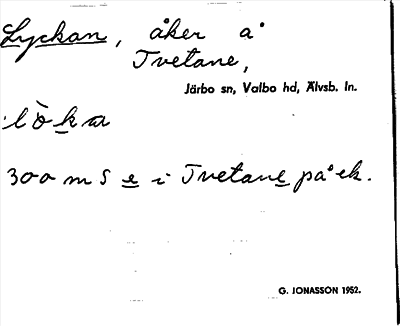 Lyckan, åker å
Tvetane,
Järbo sn, Valbo hd, Älvsb. ln.
300 m S e i Tvetane på ek.
G. JONASSON 1952.